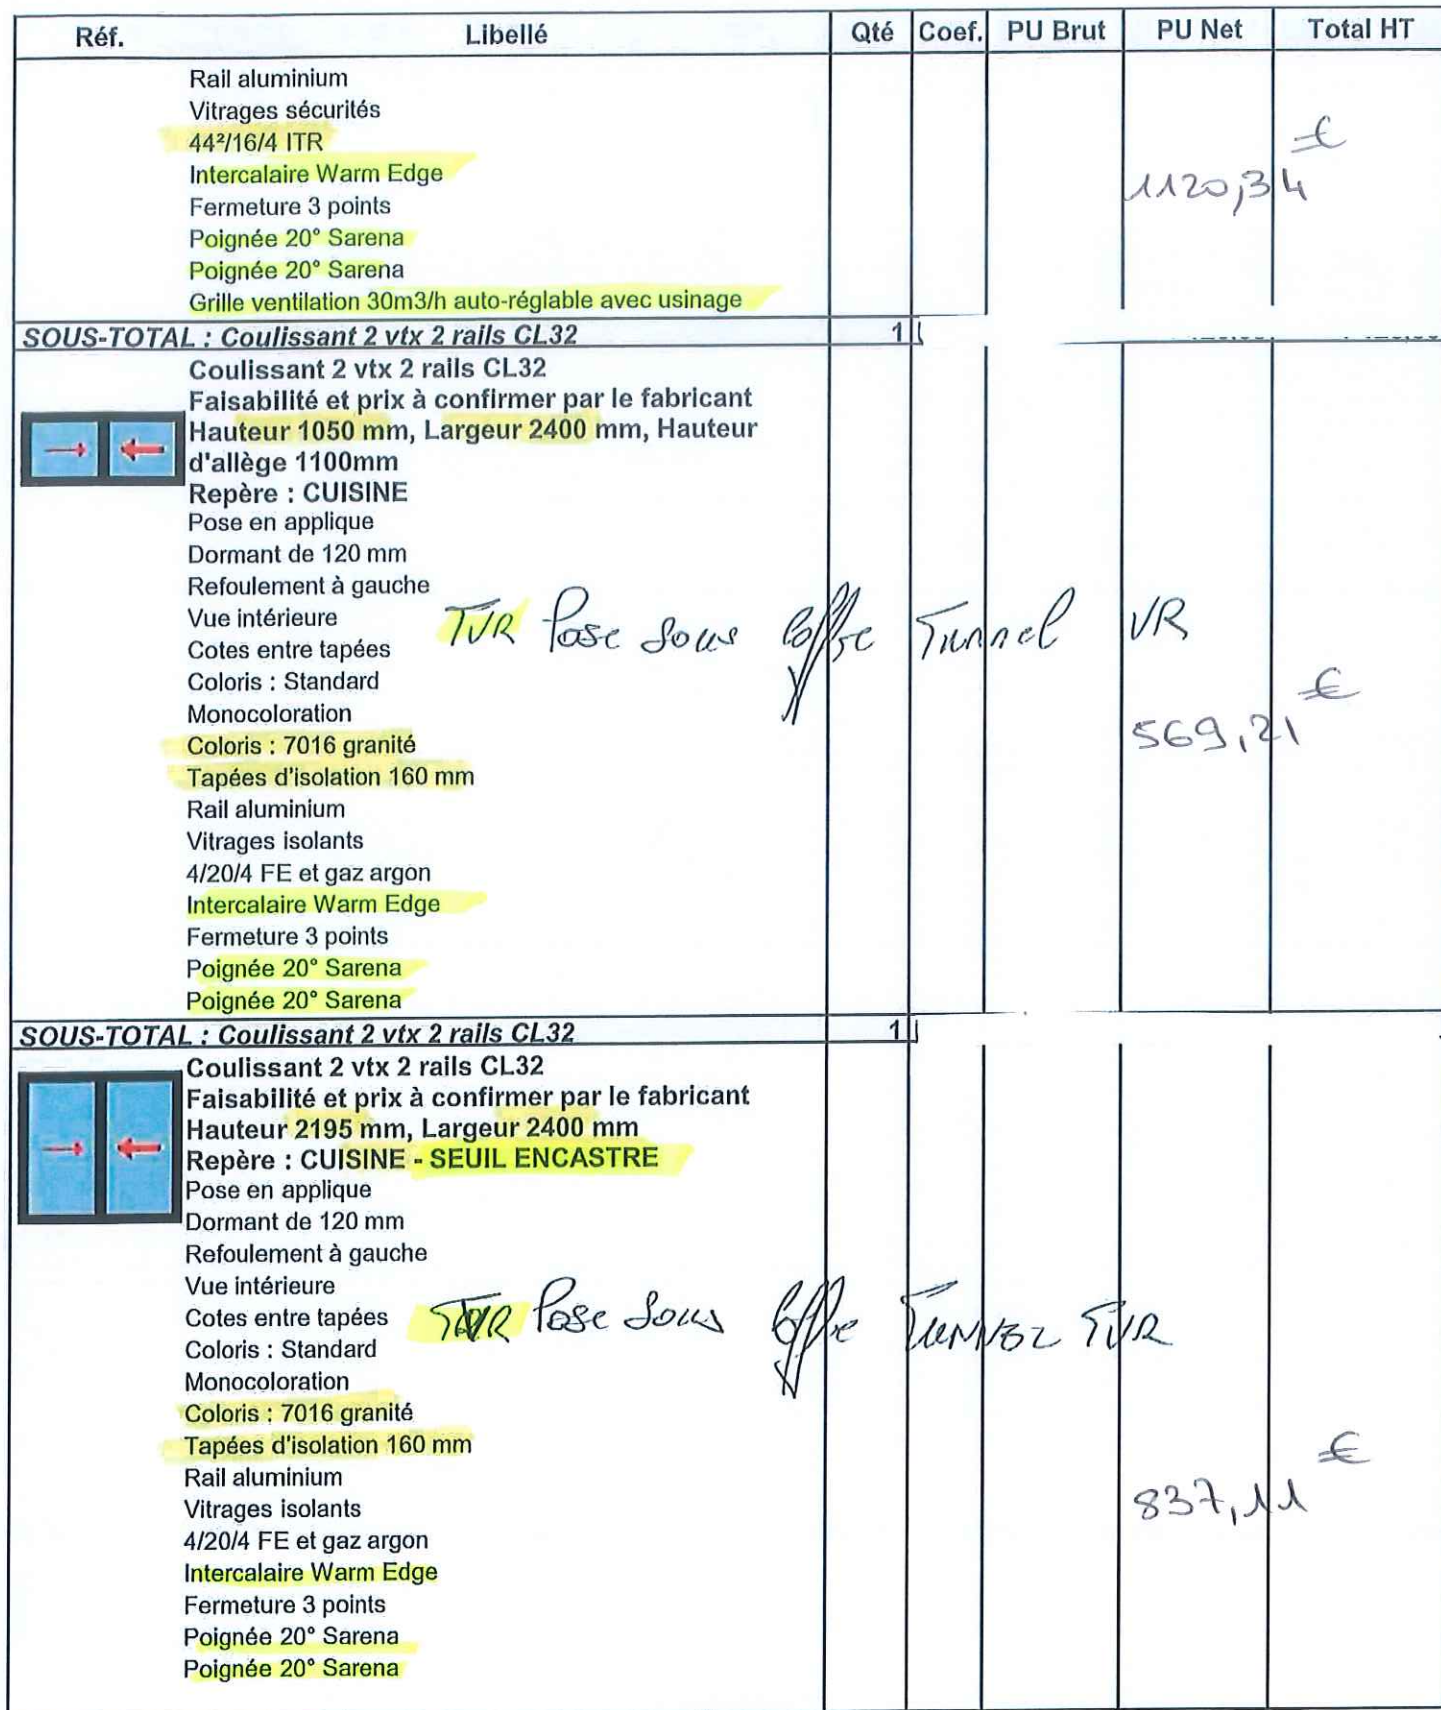 Réf. Libellé Qté Coef. PU Brut PU Net Total HT
Rail aluminium
Vitrages sécurités
44²/16/4 ITR
Intercalaire Warm Edge
Fermeture 3 points
1120,34 €
Poignée 20° Sarena
Poignée 20° Sarena
Grille ventilation 30m3/h auto-réglable avec usinage
SOUS-TOTAL : Coulissant 2 vtx 2 rails CL32 1
Coulissant 2 vtx 2 rails CL32
Faisabilité et prix à confirmer par le fabricant
Hauteur 1050 mm, Largeur 2400 mm, Hauteur
d'allège 1100mm
Repère : CUISINE
Pose en applique
Dormant de 120 mm
Refoulement à gauche
Vue intérieure
TVR Pose sous Coffre Tunnel VR
Cotes entre tapées
Coloris : Standard
Monocoloration
569,21 €
Coloris : 7016 granité
Tapées d'isolation 160 mm
Rail aluminium
Vitrages isolants
4/20/4 FE et gaz argon
Intercalaire Warm Edge
Fermeture 3 points
Poignée 20° Sarena
Poignée 20° Sarena
SOUS-TOTAL : Coulissant 2 vtx 2 rails CL32 1
Coulissant 2 vtx 2 rails CL32
Faisabilité et prix à confirmer par le fabricant
Hauteur 2195 mm, Largeur 2400 mm
Repère : CUISINE - SEUIL ENCASTRE
Pose en applique
Dormant de 120 mm
Refoulement à gauche
Vue intérieure
Cotes entre tapées
TVR Pose sous Coffre TUNNEL TVR
Coloris : Standard
Monocoloration
Coloris : 7016 granité
Tapées d'isolation 160 mm
Rail aluminium
837,11 €
Vitrages isolants
4/20/4 FE et gaz argon
Intercalaire Warm Edge
Fermeture 3 points
Poignée 20° Sarena
Poignée 20° Sarena